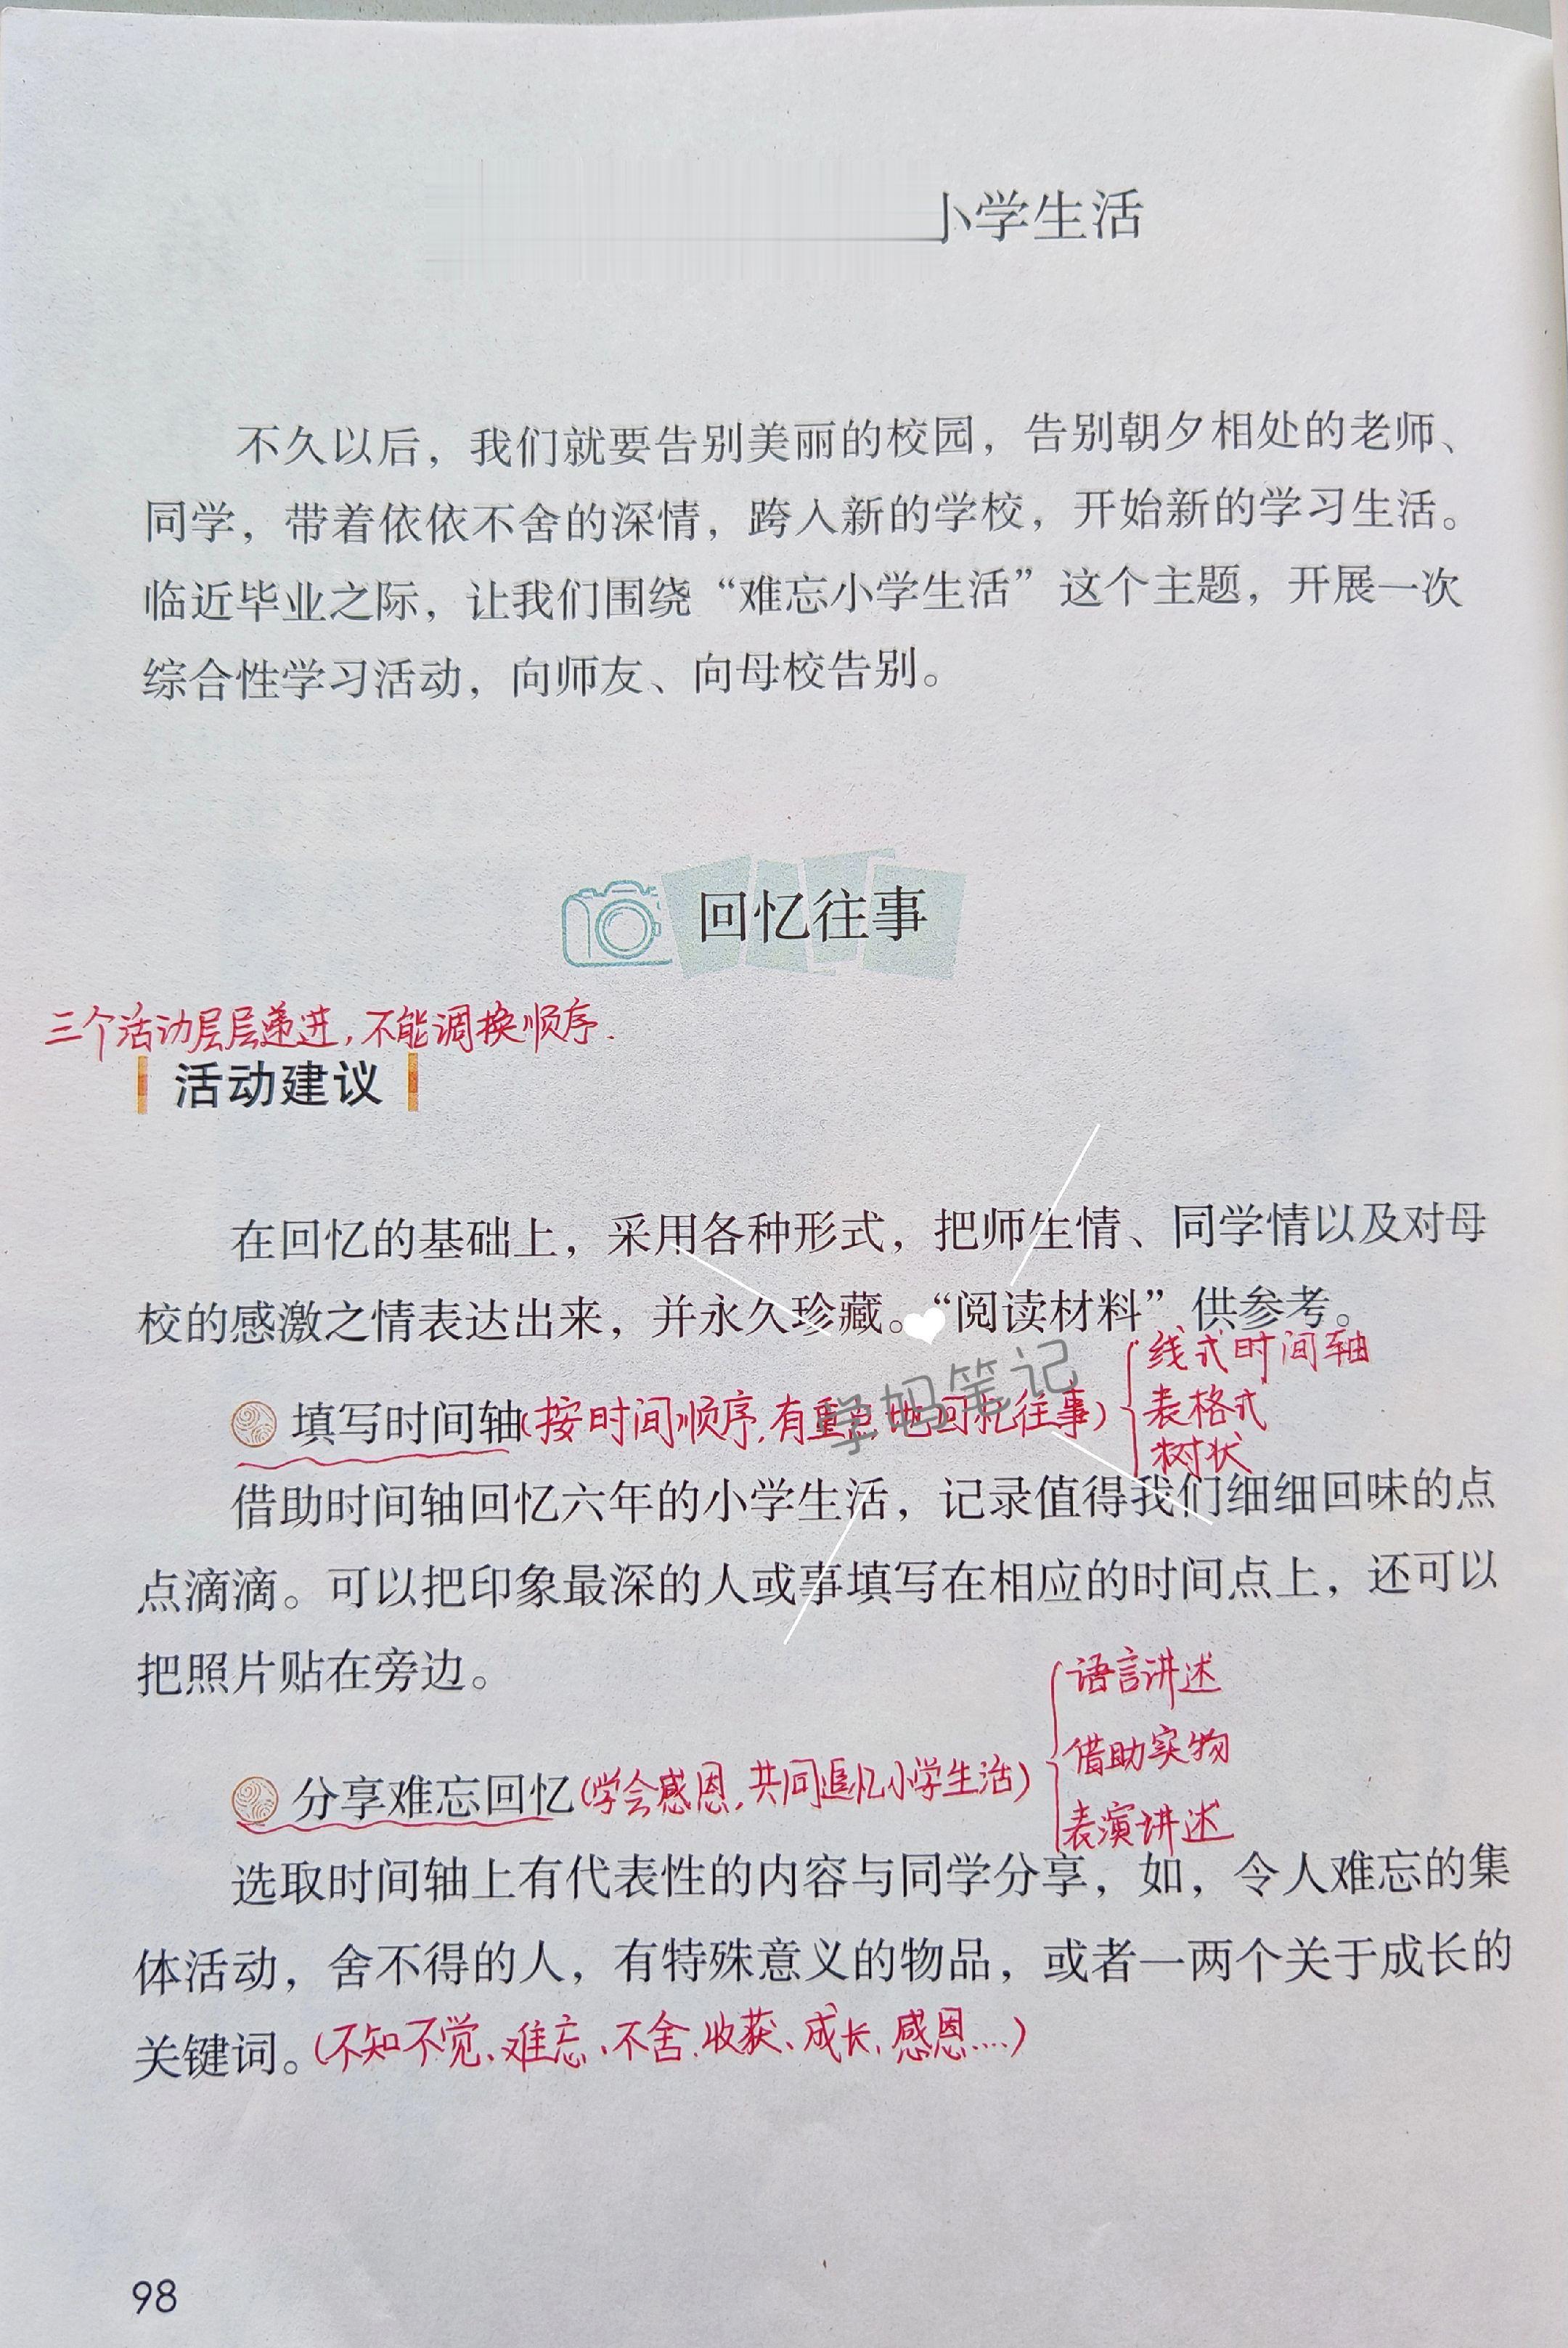 小学生活
不久以后，我们就要告别美丽的校园，告别朝夕相处的老师、
同学，带着依依不舍的深情，跨入新的学校，开始新的学习生活。
临近毕业之际，让我们围绕“难忘小学生活”这个主题，开展一次
综合性学习活动，向师友、向母校告别。
回忆往事
三个活动层层递进，不能调换顺序.
活动建议
在回忆的基础上，采用各种形式，把师生情、同学情以及对母
校的感激之情表达出来，并永久珍藏。“阅读材料”供参考。
线式时间轴
填写时间轴(按时间顺序,有重点地回忆往事)
表格式
树状
学妈笔记
借助时间轴回忆六年的小学生活，记录值得我们细细回味的点
点滴滴。可以把印象最深的人或事填写在相应的时间点上，还可以
把照片贴在旁边。
语言讲述
借助实物
分享难忘回忆(学会感恩,共同追忆小学生活)
表演讲述
选取时间轴上有代表性的内容与同学分享，如，令人难忘的集
体活动，舍不得的人，有特殊意义的物品，或者一两个关于成长的
关键词。(不知不觉、难忘、不舍、收获、成长、感恩....)
98